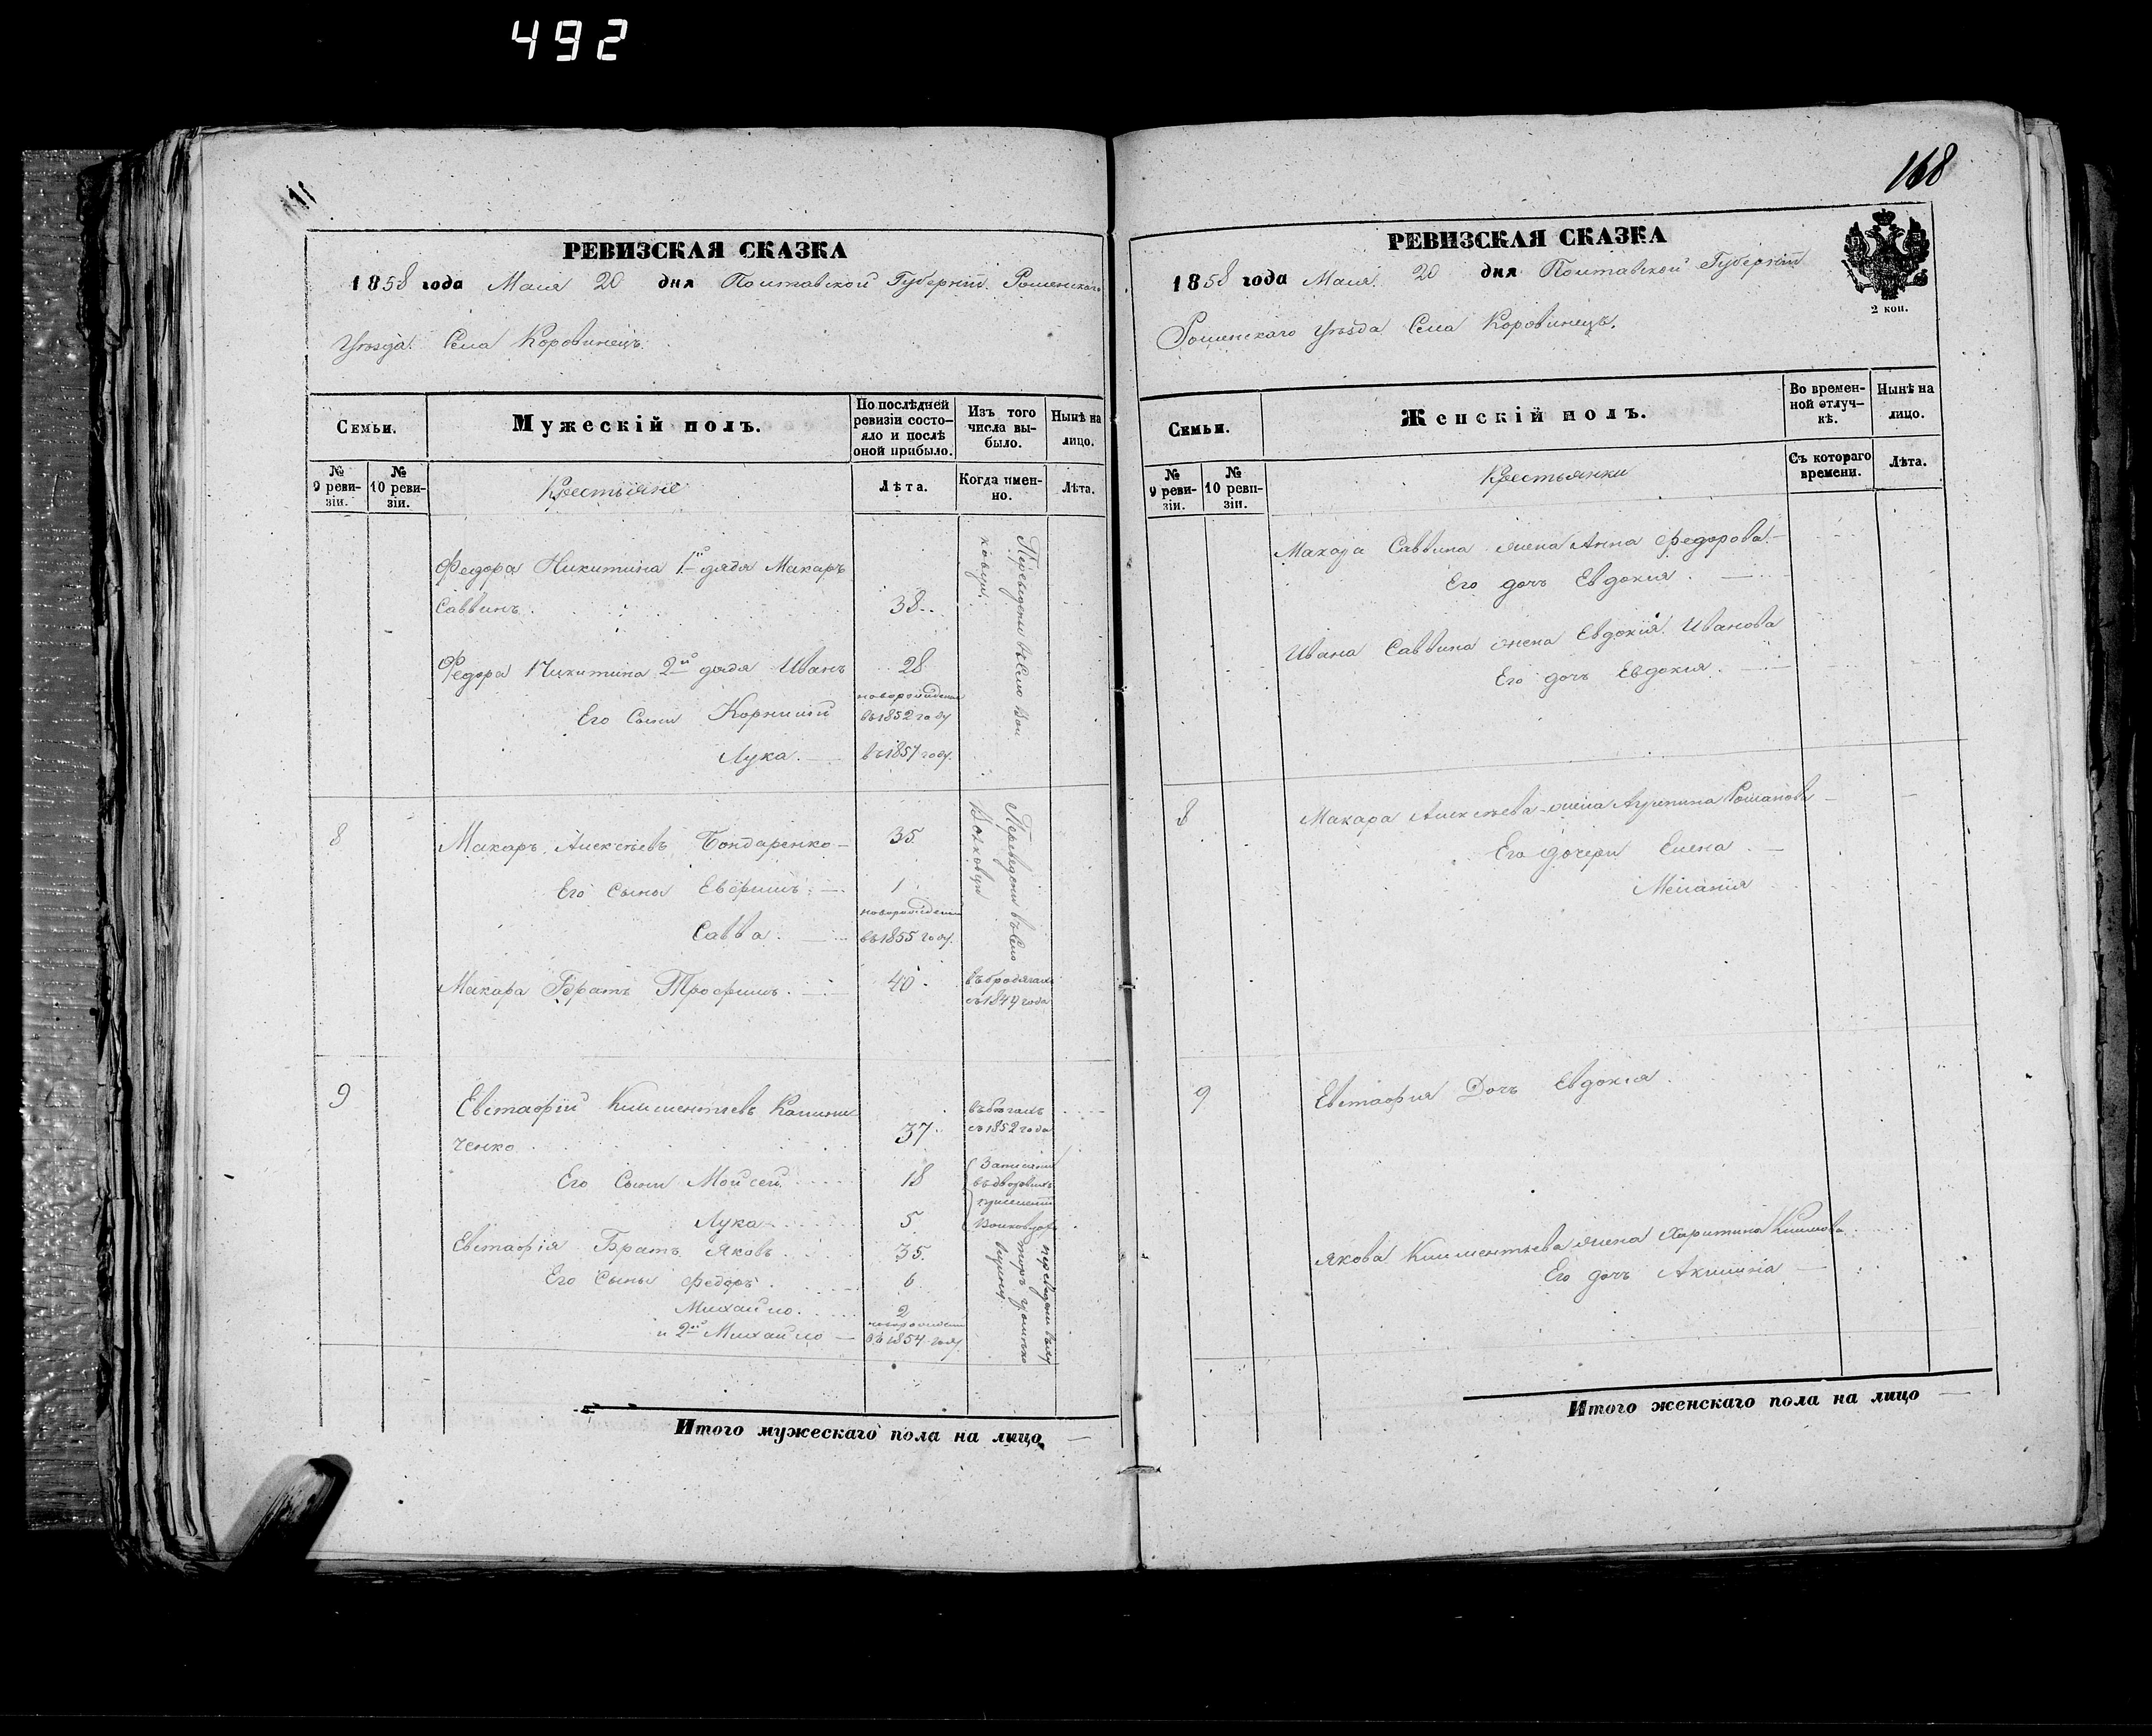 492
168
РЕВИЗСКАЯ СКАЗКА
1858 года Мая 20 дня Полтавской Губерніи Роменскаго
Уѣзда Села Коровинецъ.
Семьи.
Мужескій полъ.
По послѣдней ревизіи состояло и послѣ оной прибыло.
Изъ того числа выбыло.
Нынѣ на лицо.
№ 9 ревизіи.
№ 10 ревизіи.
Крестьяне
Лѣта.
Когда именно.
Лѣта.
Федора Никитина 1й дядя Макаръ
Саввинъ. 38
Федора Никитина 2й дядя Иванъ 28
новорожденные
Его Сыны Корнилій въ 1852 году
Лука. въ 1857 году.
Переведены въ Село Вол
ковцы.
8 Макаръ Алексѣевъ Бондаренко 35
Его Сыны Евфимъ 1
новорожденный
Савва. въ 1855 году.
Переведены въ Село
Волковцы
Макара Братъ Трофимъ. 40 въ бродягахъ
съ 1849 года
9 Евстафій Климентьевъ Калини
ченко 37 въ бѣгахъ
съ 1852 года
Его Сыны Мойсей 18 Записаны
въ дворовыхъ
Лука 5
Евстафія Братъ Яковъ 35
Его Сыны Федоръ. 6
Михайло. 2
и 2й Михайло въ 1854 году
Итого мужескаго пола на лицо
РЕВИЗСКАЯ СКАЗКА
1858 года Мая 20 дня Полтавской Губерніи
2 коп.
Роменскаго Уѣзда Села Коровинецъ.
Семьи.
Женскій полъ.
Во временной отлучкѣ.
Нынѣ на лицо.
№ 9 ревизіи.
№ 10 ревизіи.
Крестьянки
Съ котораго времени.
Лѣта.
Макара Саввина жена Анна Федорова
Его дочь Евдокия.
Ивана Саввина жена Евдокия Иванова
Его дочь Евдокия.
8 Макара Алексѣева жена Романова
Его дочери Елена
Меланія
9 Евстафия Дочь Евдокія.
Якова Климентьева жена Харитина Климова
Его дочь Акилина
Итого женскаго пола на лицо